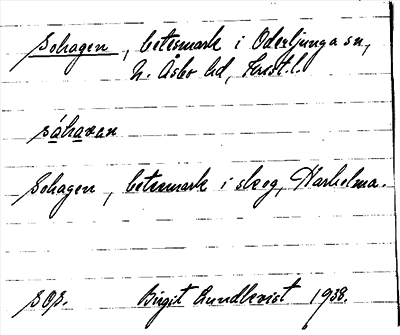 Sohagen, betesmark i Oderljunga sn,
N. Åsbo hd, Krist. l.
sóhavan
Sohagen, betesmark i skog, Harholma.
SOB. Birgit Rundkvist 1938.